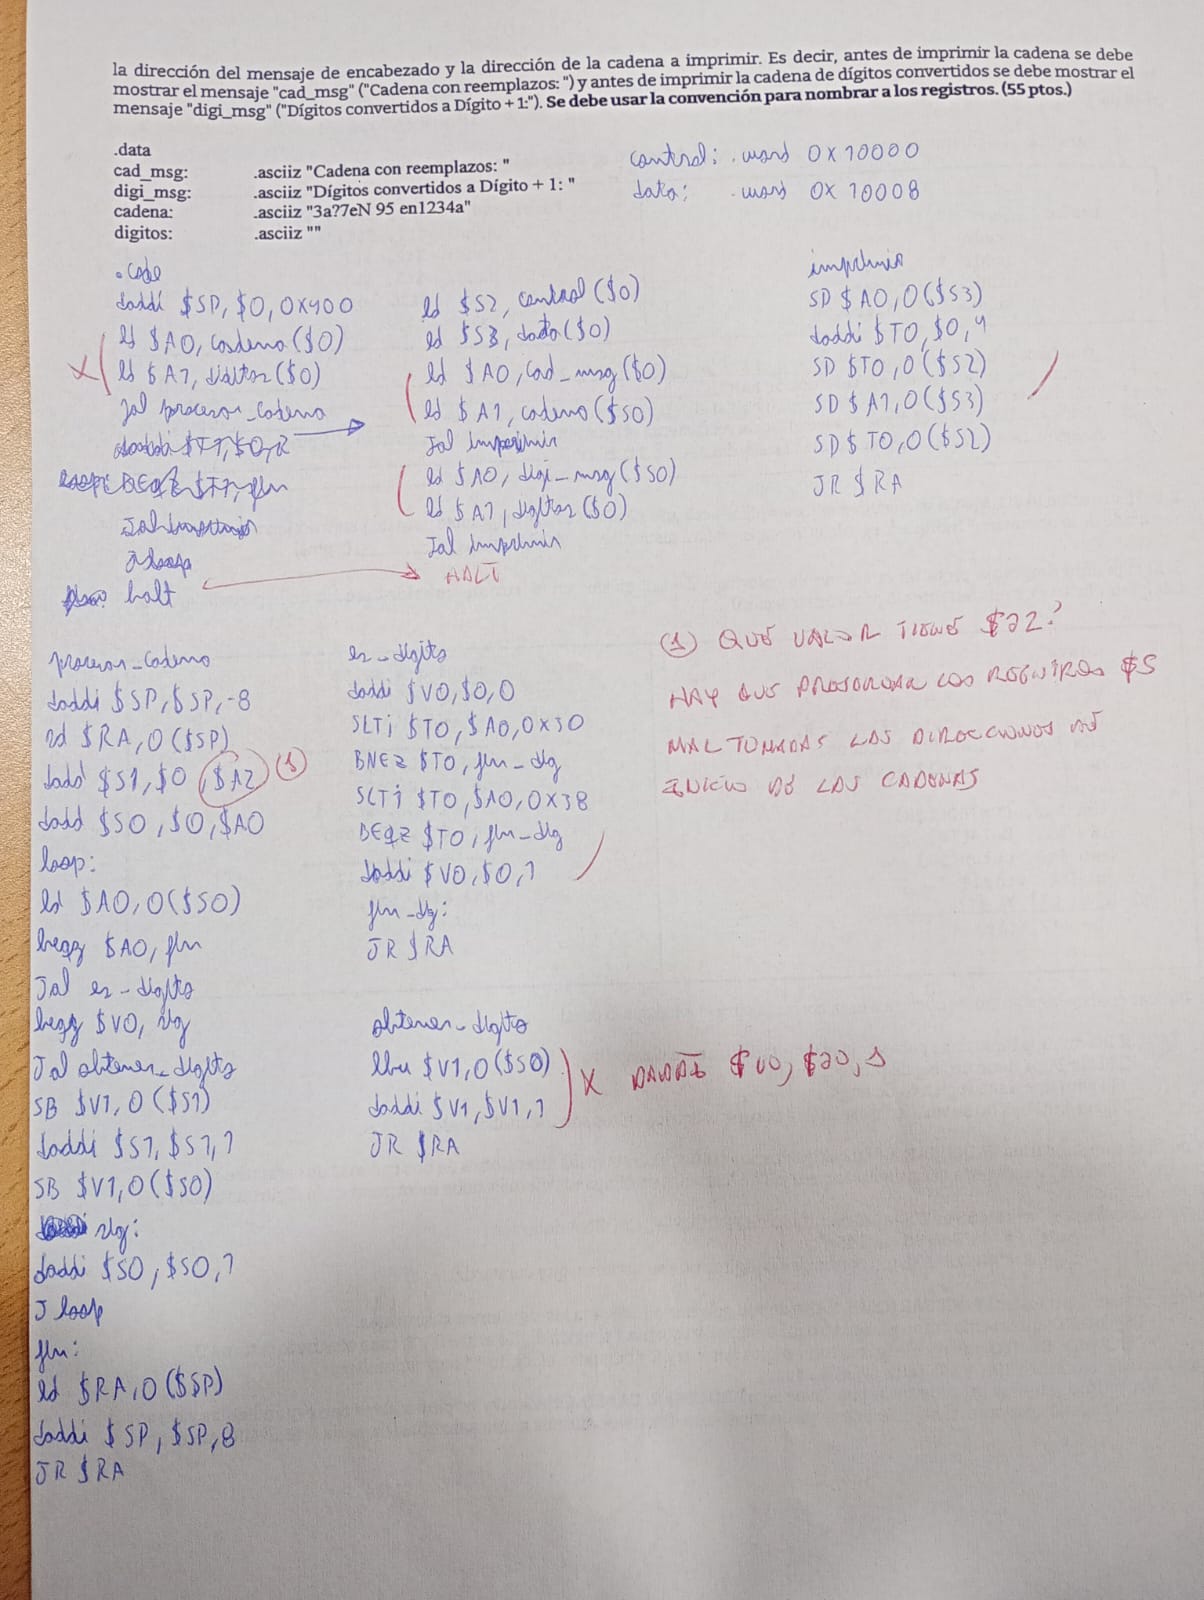 la dirección del mensaje de encabezado y la dirección de la cadena a imprimir. Es decir, antes de imprimir la cadena se debe
mostrar el mensaje "cad_msg" ("Cadena con reemplazos: ") y antes de imprimir la cadena de dígitos convertidos se debe mostrar el
mensaje "digi_msg" ("Dígitos convertidos a Dígito + 1:"). Se debe usar la convención para nombrar a los registros. (55 ptos.)
.data
cad_msg: .asciiz "Cadena con reemplazos: "
digi_msg: .asciiz "Dígitos convertidos a Dígito + 1: "
cadena: .asciiz "3a?7eN 95 en1234a"
digitos: .asciiz ""
control: .word 0x10000
data: .word 0x10008
.code
daddi $SP, $0, 0x400
ld $A0, cadena ($0)
ld $A1, digitos ($0)
Jal procesar_cadena
halt
X
ld $S2, control ($0)
ld $S3, data ($0)
ld $A0, cad_msg ($0)
ld $A1, cadena ($S0)
Jal imprimir
ld $A0, digi_msg ($S0)
ld $A1, digitos ($0)
Jal imprimir
HALT
imprimir
SD $A0, 0($S3)
daddi $T0, $0, 4
SD $T0, 0($S2)
SD $A1, 0($S3)
SD $T0, 0($S2)
JR $RA
procesar_cadena
daddi $SP, $SP, -8
sd $RA, 0($SP)
dadd $S1, $0, $A2 (1)
dadd $S0, $0, $A0
loop:
ld $A0, 0($S0)
beqz $A0, fin
Jal es_digito
beqz $V0, sig
Jal obtener_digito
SB $V1, 0($S1)
daddi $S1, $S1, 1
SB $V1, 0($S0)
sig:
daddi $S0, $S0, 1
J loop
fin:
ld $RA, 0($SP)
daddi $SP, $SP, 8
JR $RA
es_digito
daddi $V0, $0, 0
SLTi $T0, $A0, 0x30
BNEZ $T0, fin_dig
SLTi $T0, $A0, 0x38
BEQZ $T0, fin_dig
daddi $V0, $0, 1
fin_dig:
JR $RA
obtener_digito
lbu $V1, 0($S0)
daddi $V1, $V1, 1
JR $RA
X DADDI $V0, $A0, 1
(1) QUÉ VALOR TIENE $A2?
HAY QUE PRESERVAR LOS REGISTROS $S
MAL TOMADAS LAS DIRECCIONES DE
INICIO DE LAS CADENAS